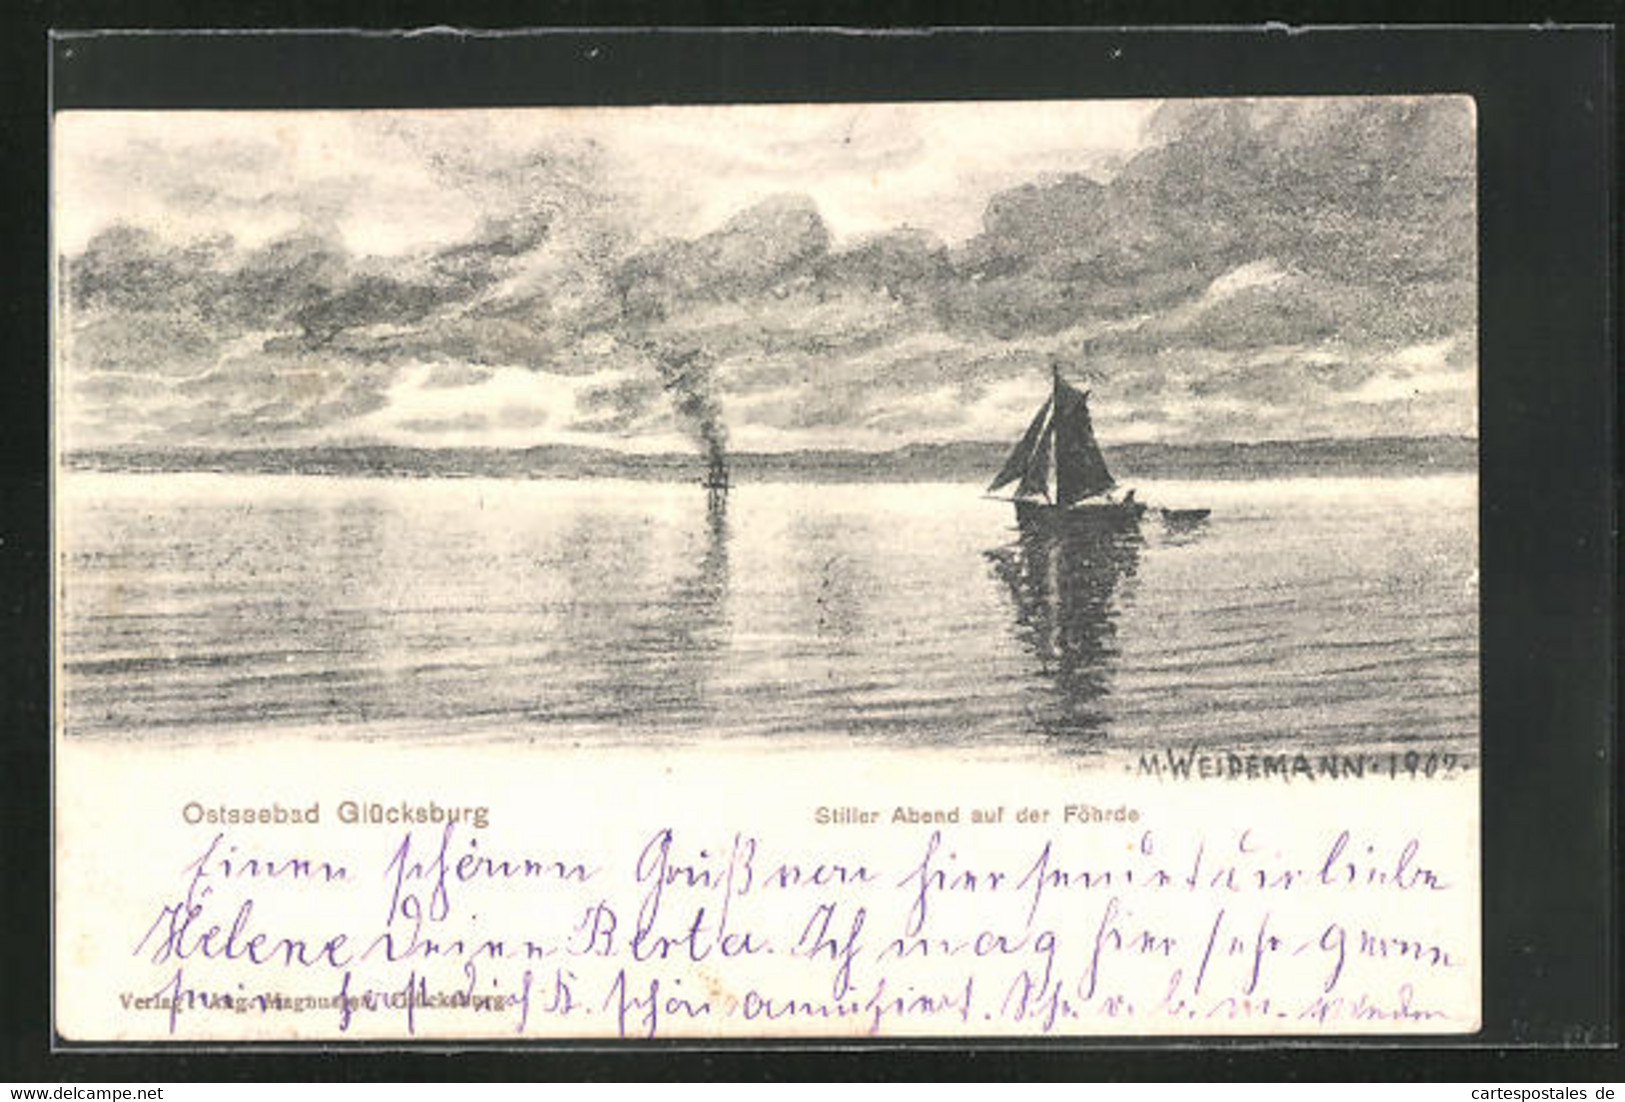 ·M·WEIDEMANN·1902·
Ostseebad Glücksburg
Stiller Abend auf der Föhrde
Einen schönen Gruß von hier sendet dir liebe
Helene Deine Berta. Ich mag hier sehr gerne
sein. hast dich schön amüsiert. Sch. v. b. m. wieder
Verlag: Aug. Magnussen, Glücksburg
cartespostales de